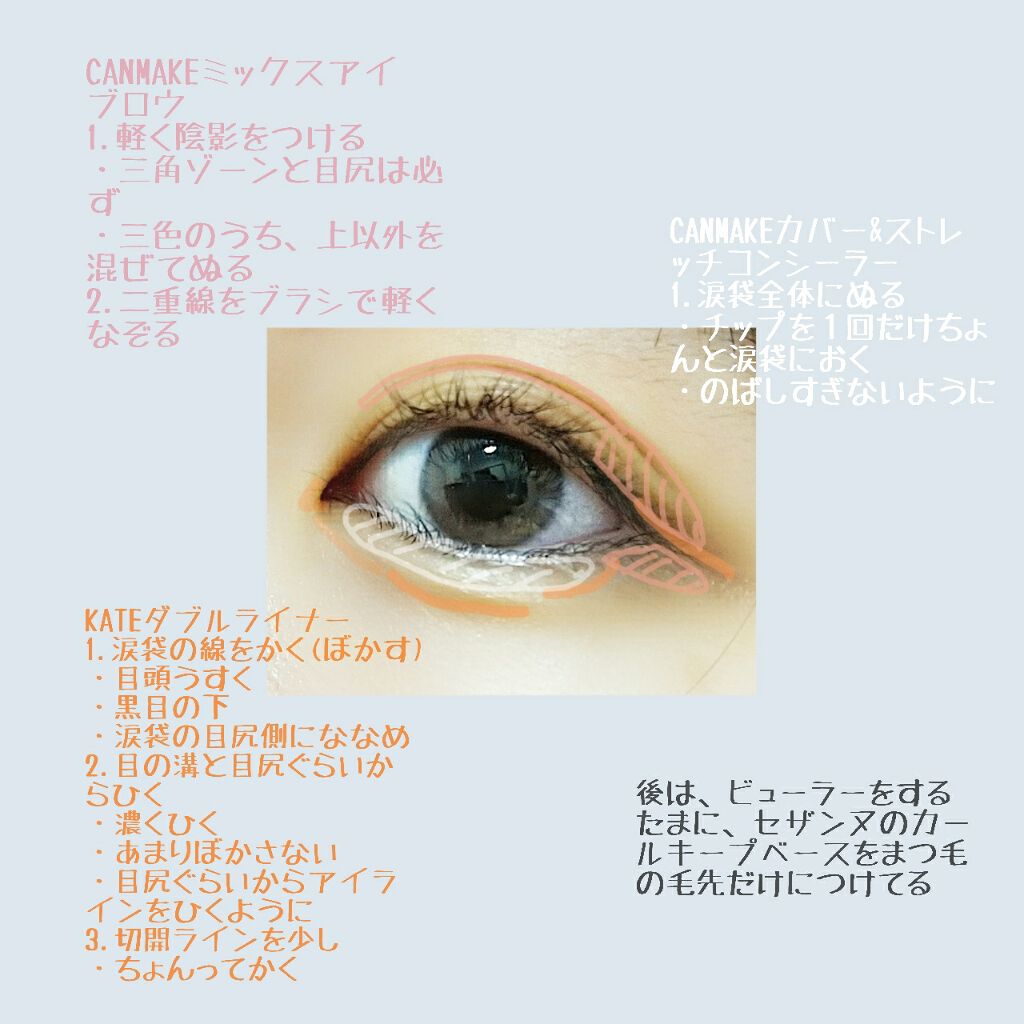 CANMAKEミックスアイ
ブロウ
1.軽く陰影をつける
・三角ゾーンと目尻は必
ず
・三色のうち、上以外を
混ぜてぬる
2.二重線をブラシで軽く
なぞる
CANMAKEカバー&ストレ
ッチコンシーラー
1.涙袋全体にぬる
・チップを1回だけちょ
んと涙袋におく
・のばしすぎないように
KATEダブルライナー
1.涙袋の線をかく(ぼかす)
・目頭うすく
・黒目の下
・涙袋の目尻側にななめ
2.目の溝と目尻ぐらいか
らひく
・濃くひく
・あまりぼかさない
・目尻ぐらいからアイラ
インをひくように
3.切開ラインを少し
・ちょんってかく
後は、ビューラーをする
たまに、セザンヌのカー
ルキープベースをまつ毛
の毛先だけにつけてる